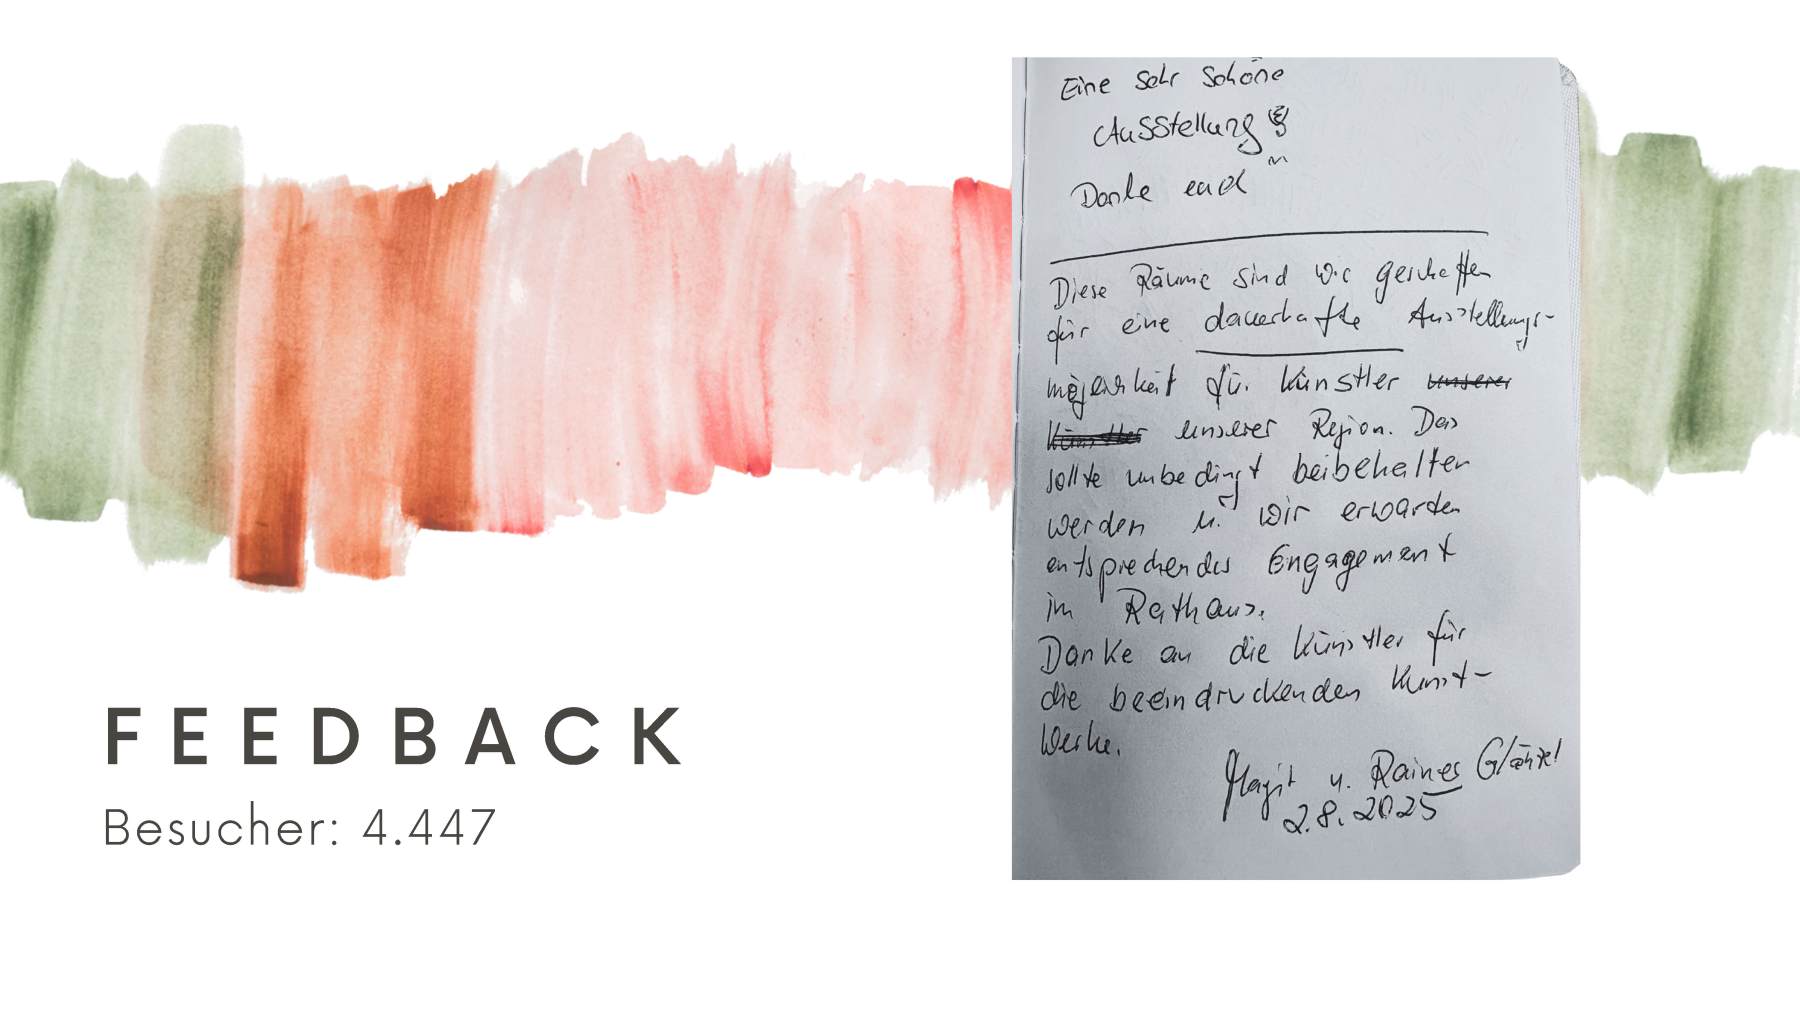 FEEDBACK
Besucher: 4.447
Eine sehr schöne
Ausstellung
Danke euch
Diese Räume sind wie geschaffen
für eine dauerhafte Ausstellungs-
möglichkeit für Künstler unserer
Künstler unserer Region. Das
sollte unbedingt beibehalten
werden u. wir erwarten
entsprechendes Engagement
im Rathaus.
Danke an die Künstler für
die beeindruckenden Kunst-
werke.
u. Rainer
2.8.2025